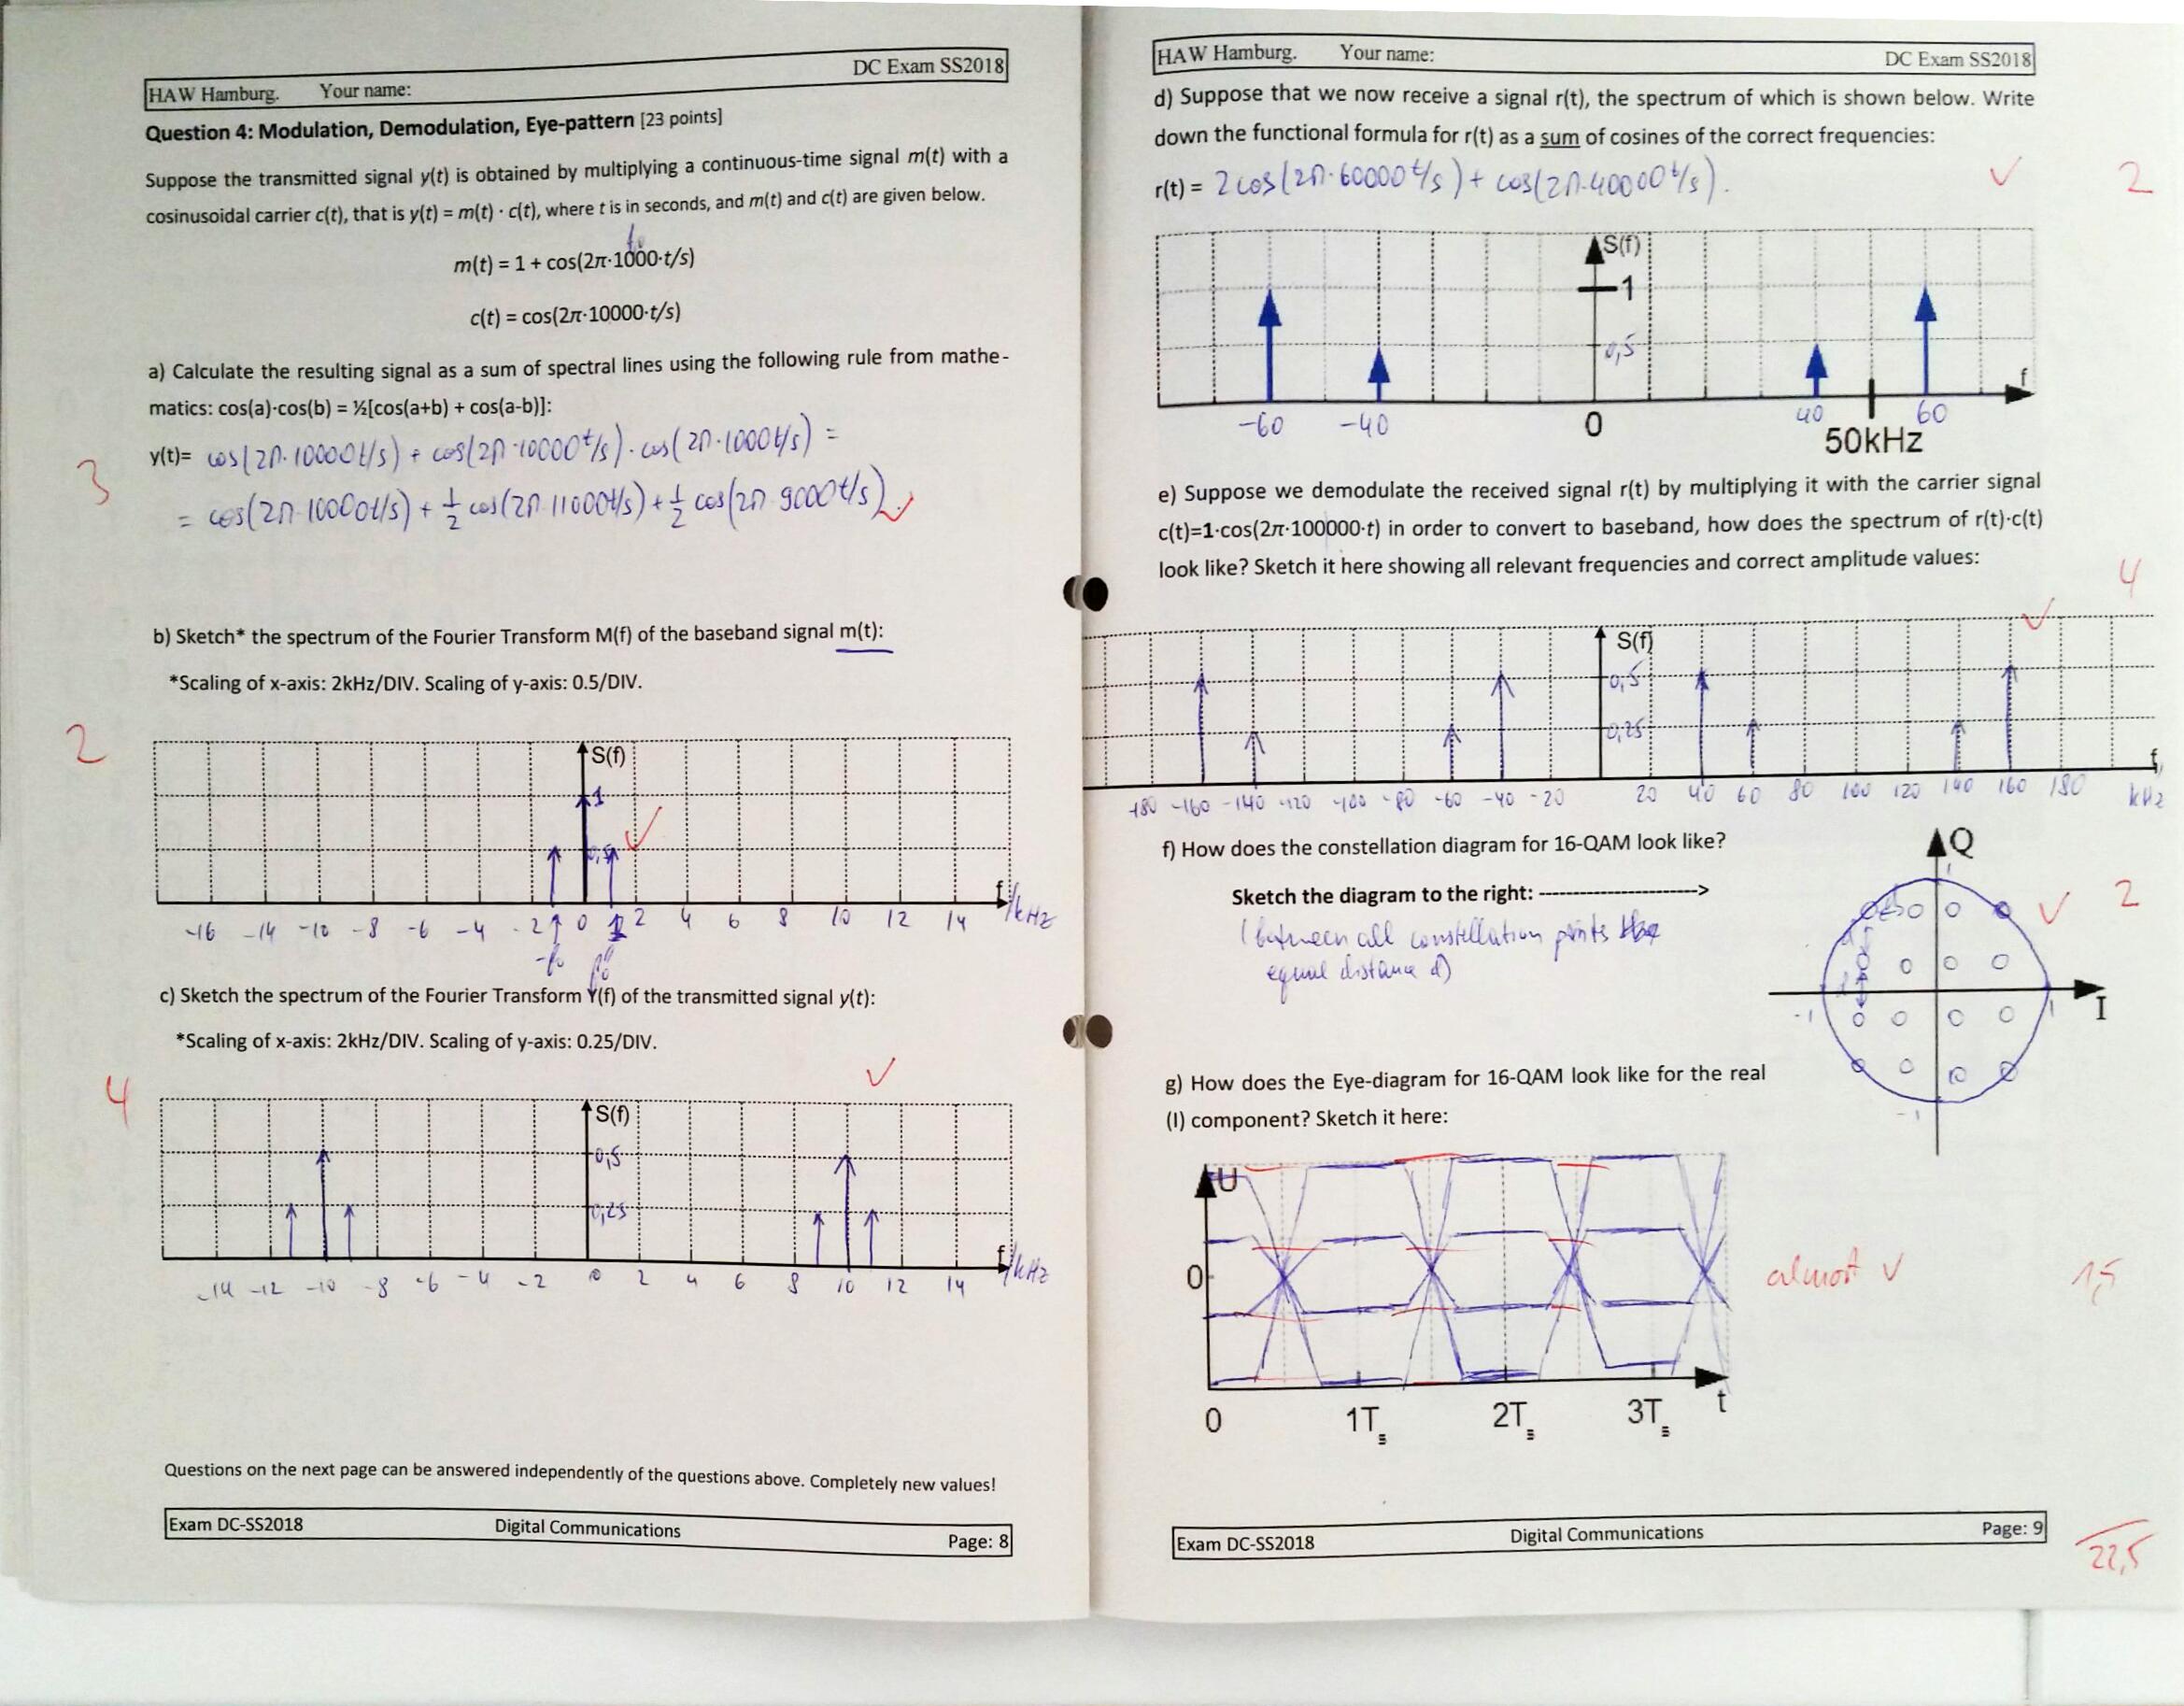 DC Exam SS2018
HAW Hamburg. Your name:
Question 4: Modulation, Demodulation, Eye-pattern [23 points]
Suppose the transmitted signal y(t) is obtained by multiplying a continuous-time signal m(t) with a
cosinusoidal carrier c(t), that is y(t) = m(t) · c(t), where t is in seconds, and m(t) and c(t) are given below.
m(t) = 1 + cos(2π·1000·t/s)
c(t) = cos(2π·10000·t/s)
a) Calculate the resulting signal as a sum of spectral lines using the following rule from mathe-
matics: cos(a)·cos(b) = ½[cos(a+b) + cos(a-b)]:
y(t)= cos(2π·10000t/s) + cos(2π·10000t/s)·cos(2π·1000t/s) =
3
= cos(2π·10000t/s) + 1/2 cos(2π·11000t/s) + 1/2 cos(2π·9000t/s).
b) Sketch* the spectrum of the Fourier Transform M(f) of the baseband signal m(t):
*Scaling of x-axis: 2kHz/DIV. Scaling of y-axis: 0.5/DIV.
2
S(f)
1
0,5
f/kHz
-16 -14 -10 -8 -6 -4 -2 0 1 2 4 6 8 10 12 14
-f₀ f₀
c) Sketch the spectrum of the Fourier Transform Y(f) of the transmitted signal y(t):
*Scaling of x-axis: 2kHz/DIV. Scaling of y-axis: 0.25/DIV.
4
S(f)
0,5
0,25
f/kHz
-14 -12 -10 -8 -6 -4 -2 0 2 4 6 8 10 12 14
Questions on the next page can be answered independently of the questions above. Completely new values!
Exam DC-SS2018 Digital Communications Page: 8
HAW Hamburg. Your name: DC Exam SS2018
d) Suppose that we now receive a signal r(t), the spectrum of which is shown below. Write
down the functional formula for r(t) as a sum of cosines of the correct frequencies:
r(t) = 2cos(2π·60000t/s) + cos(2π·40000t/s). ✓ 2
S(f)
1
0,5
f
-60 -40 0 40 60
50kHz
e) Suppose we demodulate the received signal r(t) by multiplying it with the carrier signal
c(t)=1·cos(2π·100000·t) in order to convert to baseband, how does the spectrum of r(t)·c(t)
look like? Sketch it here showing all relevant frequencies and correct amplitude values:
4
S(f)
0,5
0,25
f,
-180 -160 -140 -120 -100 -80 -60 -40 -20 20 40 60 80 100 120 140 160 180 kHz
f) How does the constellation diagram for 16-QAM look like?
Sketch the diagram to the right: ---------------------->
(between all constellation points
equal distance d)
Q
1
2
-1 1 I
-1
g) How does the Eye-diagram for 16-QAM look like for the real
(I) component? Sketch it here:
U
0
almost ✓ 1,5
0 1Ts 2Ts 3Ts t
Exam DC-SS2018 Digital Communications Page: 9
22,5